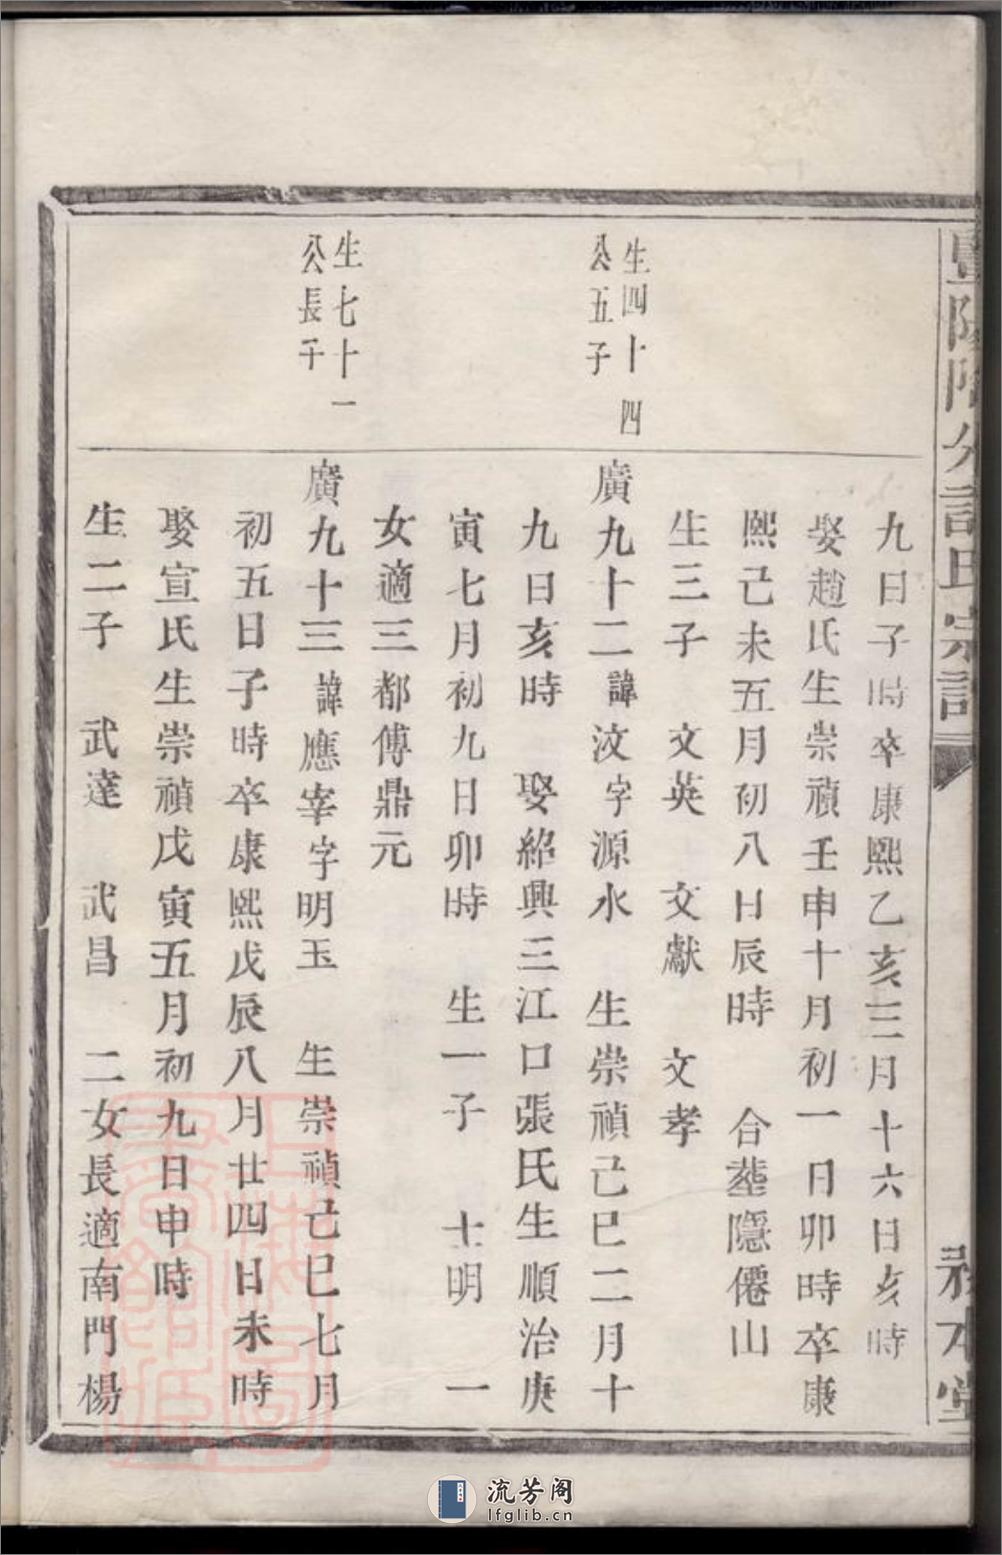 九日子時卒康熙乙亥三月十六日亥時
娶趙氏生崇禎壬申十月初一日卯時卒康
熙己未五月初八日辰時 合塟隱僊山
生三子 文英 文獻 文孝
生四十四
公五子
廣九十二諱汶字源水 生崇禎己巳二月十
九日亥時 娶紹興三江口張氏生順治庚
寅七月初九日卯時 生一子 士明 一
女適三都傅鼎元
生七十一
公長子
廣九十三諱應宰字明玉 生崇禎己巳七月
初五日子時卒康熙戊辰八月廿四日未時
娶宣氏生崇禎戊寅五月初九日申時
生二子 武達 武昌 二女長適南門楊
流芳阁
lfglib.cn